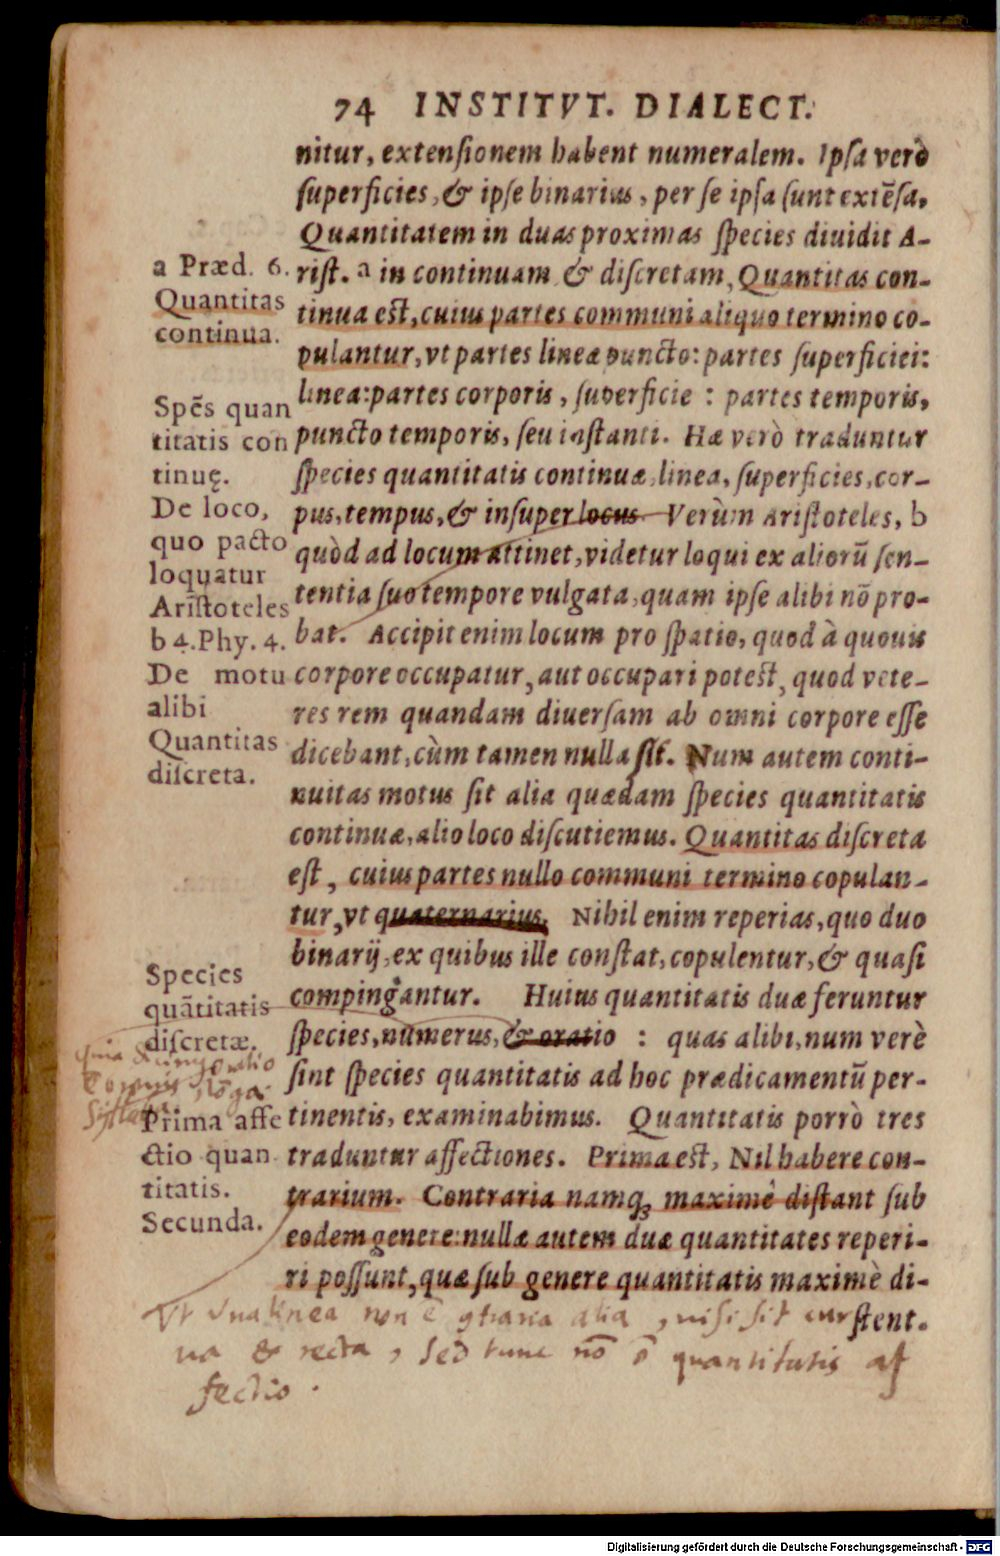 74 INSTITVT. DIALECT.
nitur, extensionem habent numeralem. Ipsa verò
superficies, & ipse binarius, per se ipsa sunt extēsa.
Quantitatem in duas proximas species diuidit A-
rist. a in continuam & discretam, Quantitas con-
tinua est, cuius partes communi aliquo termino co-
pulantur, vt partes lineæ puncto: partes superficiei:
linea: partes corporis, superficie : partes temporis,
puncto temporis, seu instanti. Hæ verò traduntur
species quantitatis continuæ, linea, superficies, cor-
pus, tempus, & insuper locus. Verùm Aristoteles, b
quòd ad locum attinet, videtur loqui ex aliorū sen-
tentia suo tempore vulgata, quam ipse alibi nō pro-
bat. Accipit enim locum pro spatio, quod à quouis
corpore occupatur, aut occupari potest, quod vete-
res rem quandam diuersam ab omni corpore esse
dicebant, cùm tamen nulla sit. Num autem conti-
nuitas motus sit alia quædam species quantitatis
continuæ, alio loco discutiemus. Quantitas discreta
est, cuius partes nullo communi termino copulan-
tur, vt quaternarius. Nihil enim reperias, quo duo
binarij, ex quibus ille constat, copulentur, & quasi
compingantur. Huius quantitatis duæ feruntur
species, numerus, & oratio : quas alibi, num verè
sint species quantitatis ad hoc prædicamentū per-
tinentis, examinabimus. Quantitatis porrò tres
traduntur affectiones. Prima est, Nil habere con-
trarium. Contraria namq; maximè distant sub
eodem genere: nullæ autem duæ quantitates reperi-
ri possunt, quæ sub genere quantitatis maximè di-
stent.
a Præd. 6.
Quantitas
continua.
Spēs quan
titatis con
tinuę.
De loco,
quo pacto
loquatur
Aristoteles
b 4. Phy. 4.
De motu
alibi
Quantitas
discreta.
Species
quātitatis
discretæ.
Prima affe
ctio quan
titatis.
Secunda.
Vt vna linea non ē ꝯtraria alia, nisi sit cur
ua & recta, sed tunc nō ē quantitatis af
fectio.
Digitalisierung gefördert durch die Deutsche Forschungsgemeinschaft - DFG